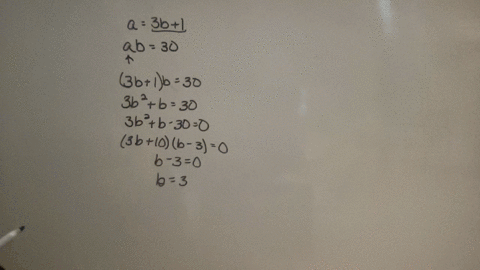 a = 3b+1
ab = 30
↑
(3b+1)b = 30
3b² + b = 30
3b² + b - 30 = 0
(3b+10)(b-3) = 0
b - 3 = 0
b = 3